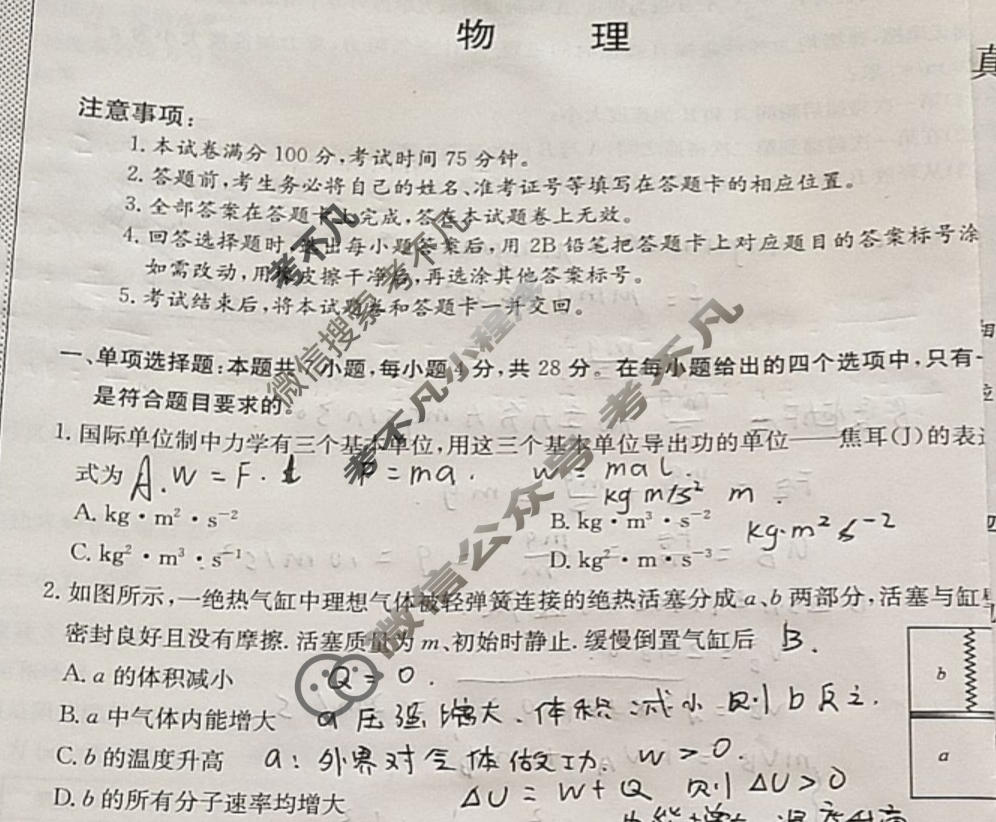 物 理
注意事项:
1. 本试卷满分 100 分,考试时间 75 分钟。
2. 答题前,考生务必将自己的姓名、准考证号等填写在答题卡的相应位置。
3. 全部答案在答题卡上完成,答在本试题卷上无效。
4. 回答选择题时,选出每小题答案后,用 2B 铅笔把答题卡上对应题目的答案标号涂
如需改动,用橡皮擦干净后,再选涂其他答案标号。
5. 考试结束后,将本试题卷和答题卡一并交回。
一、单项选择题:本题共 小题,每小题 4 分,共 28 分。在每小题给出的四个选项中,只有一
是符合题目要求的。
1. 国际单位制中力学有三个基本单位,用这三个基本单位导出功的单位——焦耳(J)的表达
式为 A. W = F·L = ma. W = maL.
kg m/s² m.
A. kg·m²·s⁻² B. kg·m³·s⁻²
kg·m² s⁻²
C. kg²·m³·s⁻¹ D. kg²·m·s⁻³
2. 如图所示,一绝热气缸中理想气体被轻弹簧连接的绝热活塞分成 a、b 两部分,活塞与缸壁
密封良好且没有摩擦. 活塞质量为 m、初始时静止. 缓慢倒置气缸后 B.
A. a 的体积减小 Q = 0.
B. a 中气体内能增大 a 压强增大、体积减小 则 b 反之.
C. b 的温度升高 a: 外界对气体做功. W > 0.
D. b 的所有分子速率均增大 ΔU = W + Q 则 ΔU > 0
b
a
真
考不凡
微信搜索 考不凡
考不凡小程序
微信公众号 考不凡